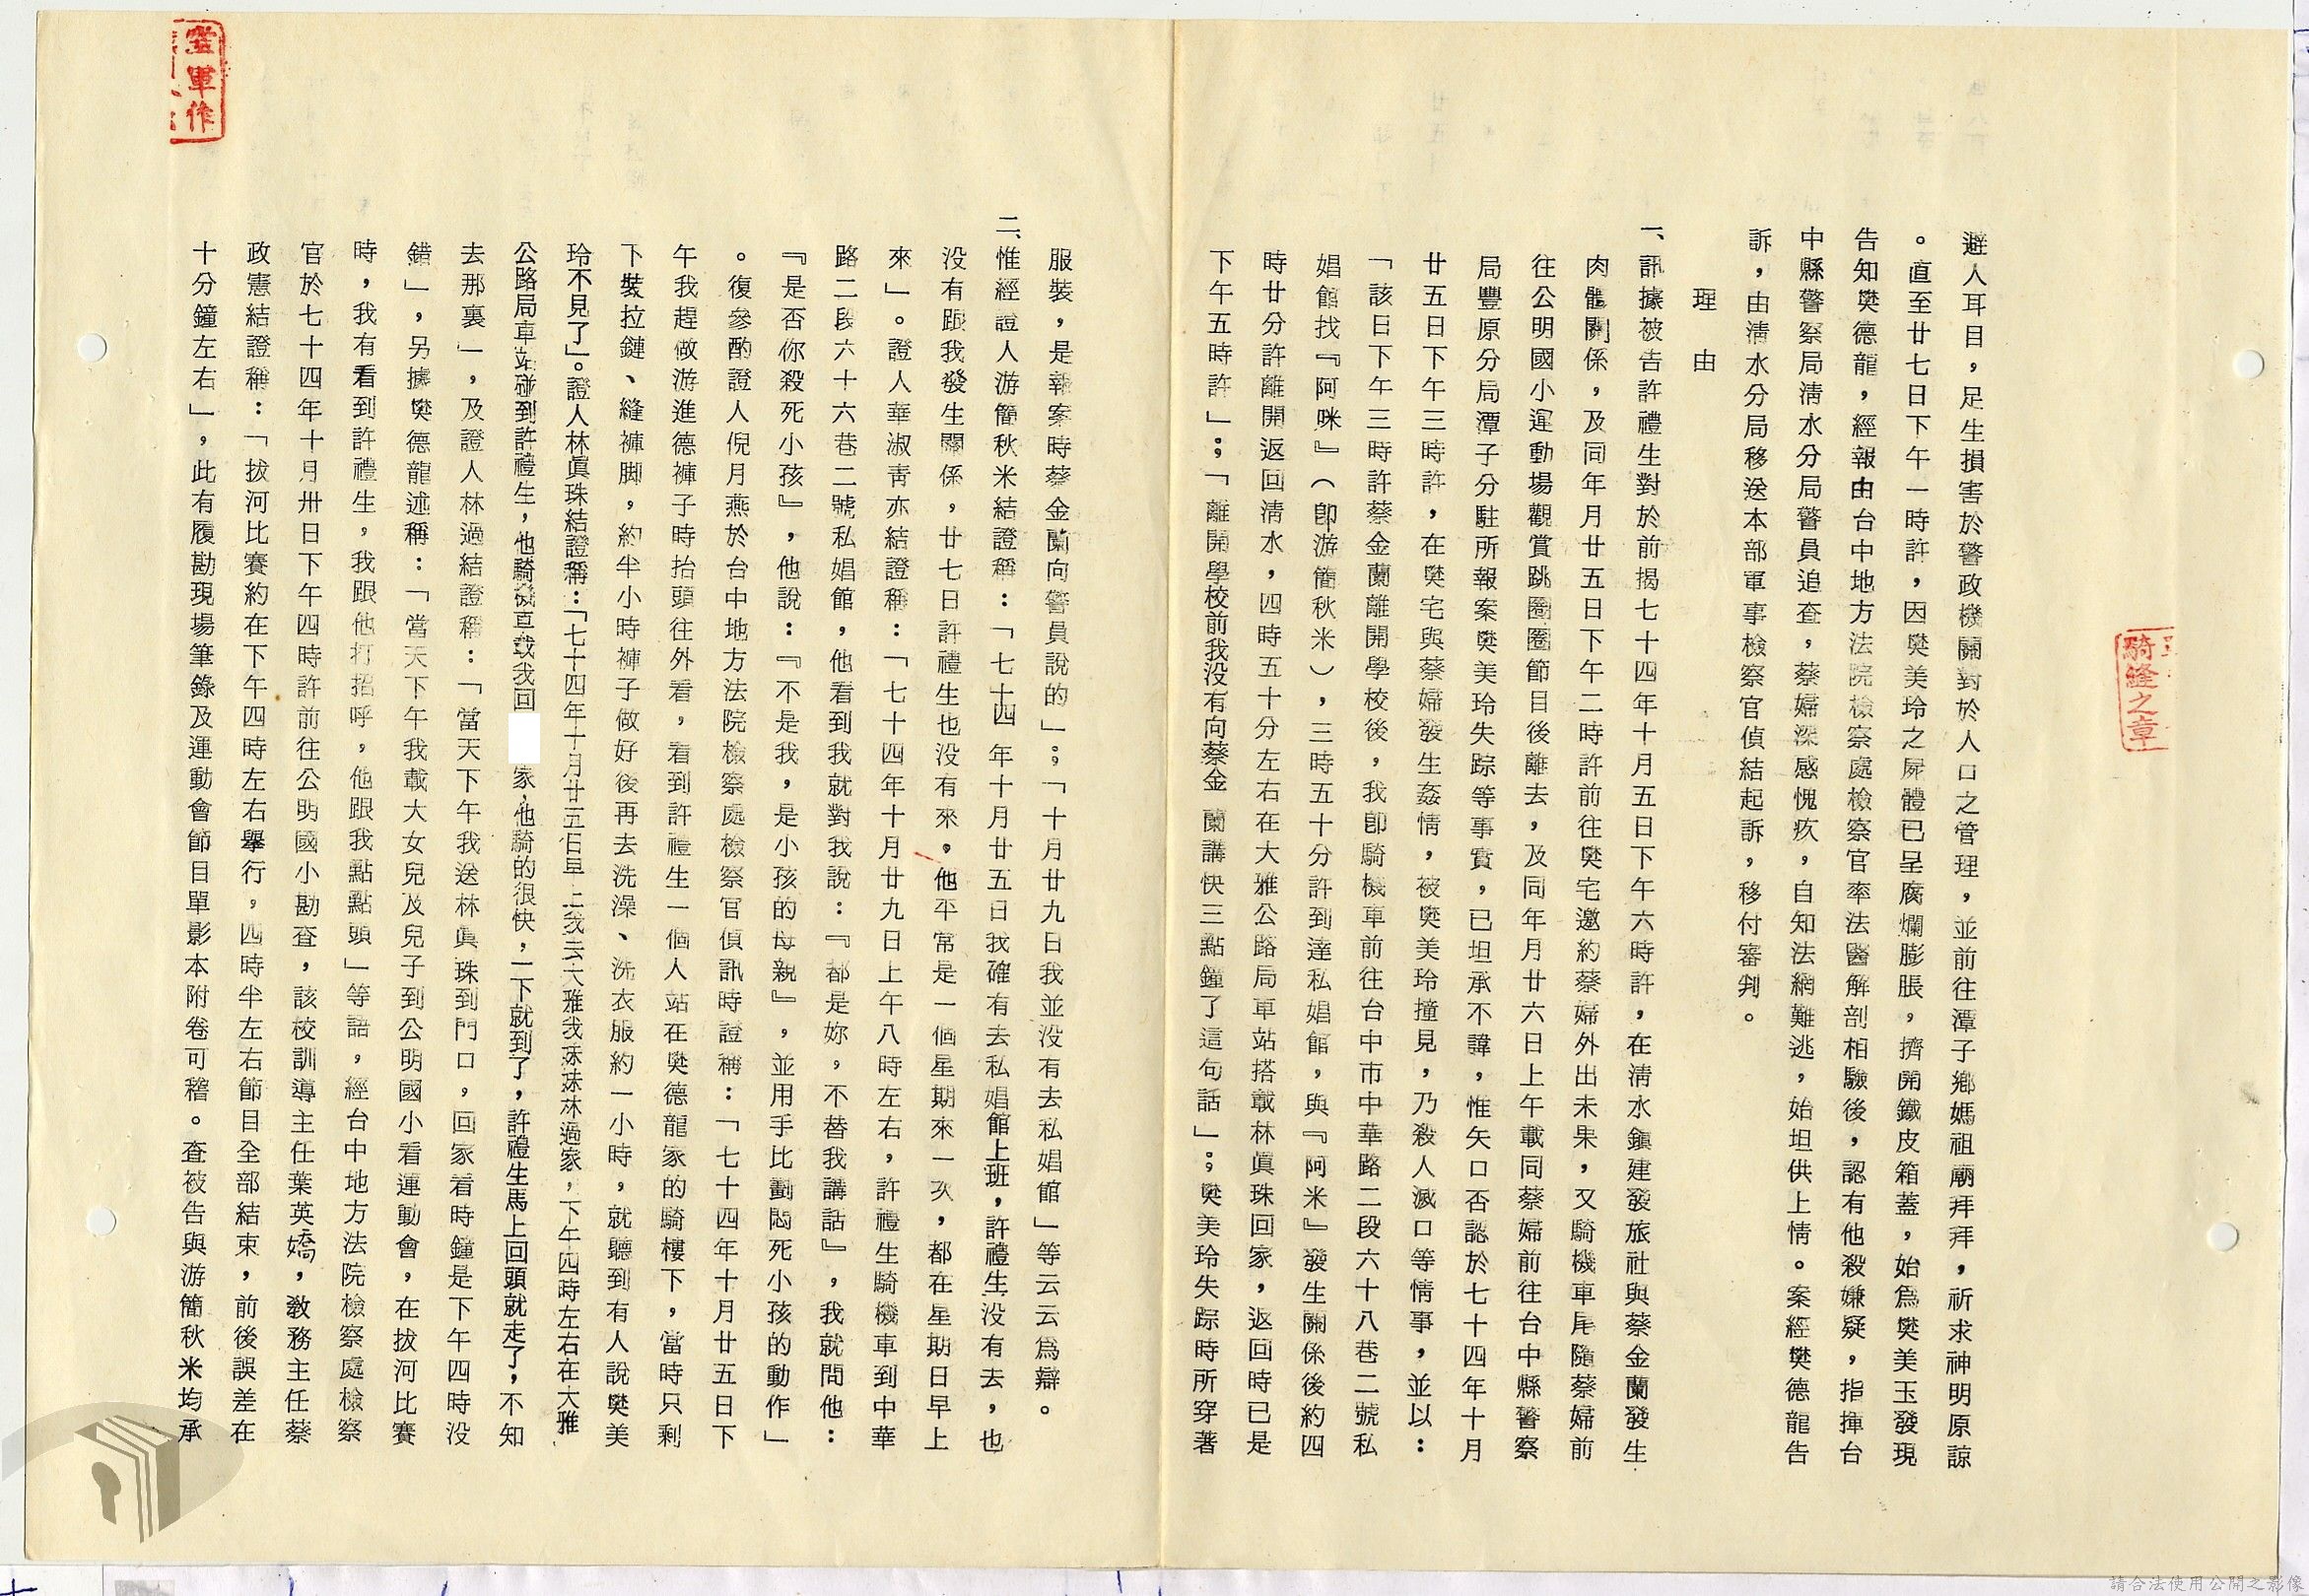 避人耳目，足生損害於警政機關對於人口之管理，並前往潭子鄉媽祖廟拜拜，祈求神明原諒
。直至廿七日下午一時許，因樊美玲之屍體已呈腐爛膨脹，擠開鐵皮箱蓋，始為樊美玉發現
告知樊德龍，經報由台中地方法院檢察處檢察官率法醫解剖相驗後，認有他殺嫌疑，指揮台
中縣警察局清水分局警員追查，蔡婦深感愧疚，自知法網難逃，始坦供上情。案經樊德龍告
訴，由清水分局移送本部軍事檢察官偵結起訴，移付審判。
理由
一、訊據被告許禮生對於前揭七十四年十月五日下午六時許，在清水鎮建發旅社與蔡金蘭發生
肉體關係，及同年月廿五日下午二時許前往樊宅邀約蔡婦外出未果，又騎機車尾隨蔡婦前
往公明國小運動場觀賞跳圈圈節目後離去，及同年月廿六日上午載同蔡婦前往台中縣警察
局豐原分局潭子分駐所報案樊美玲失踪等事實，已坦承不諱，惟矢口否認於七十四年十月
廿五日下午三時許，在樊宅與蔡婦發生姦情，被樊美玲撞見，乃殺人滅口等情事，並以：
「該日下午三時許蔡金蘭離開學校後，我即騎機車前往台中市中華路二段六十八巷二號私
娼館找『阿咪』（即游簡秋米），三時五十分許到達私娼館，與『阿米』發生關係後約四
時廿分許離開返回清水，四時五十分左右在大雅公路局車站搭載林眞珠回家，返回時已是
下午五時許」；「離開學校前我没有向蔡金蘭講快三點鐘了這句話」；樊美玲失踪時所穿著
服裝，是報案時蔡金蘭向警員說的」；「十月廿九日我並没有去私娼館」等云云為辯。
二、惟經證人游簡秋米結證稱：「七十四年十月廿五日我確有去私娼館上班，許禮生没有去，也
没有跟我發生關係，廿七日許禮生也没有來，他平常是一個星期來一次，都在星期日早上
來」。證人華淑靑亦結證稱：「七十四年十月廿九日上午八時左右，許禮生騎機車到中華
路二段六十六巷二號私娼館，他看到我就對我說：『都是妳，不替我講話』，我就問他：
『是否你殺死小孩』，他說：『不是我，是小孩的母親』，並用手比劃悶死小孩的動作」
。復參酌證人倪月燕於台中地方法院檢察處檢察官偵訊時證稱：「七十四年十月廿五日下
午我趕做游進德褲子時抬頭往外看，看到許禮生一個人站在樊德龍家的騎樓下，當時只剩
下裝拉鏈、縫褲脚，約半小時褲子做好後再去洗澡、洗衣服約一小時，就聽到有人說樊美
玲不見了」。證人林眞珠結證稱：「七十四年十月廿五日早上我去大雅我妹妹林過家，下午四時左右在大雅
公路局車站碰到許禮生，他騎機車載我回家，他騎的很快，一下就到了，許禮生馬上回頭就走了，不知
去那裏」，及證人林過結證稱：「當天下午我送林眞珠到門口，回家看時鐘是下午四時没
錯」，另據樊德龍述稱：「當天下午我載大女兒及兒子到公明國小看運動會，在拔河比賽
時，我有看到許禮生，我跟他打招呼，他跟我點點頭」等語，經台中地方法院檢察處檢察
官於七十四年十月卅日下午四時許前往公明國小勘查，該校訓導主任葉英嬌，敎務主任蔡
政憲結證稱：「拔河比賽約在下午四時左右舉行，四時半左右節目全部結束，前後誤差在
十分鐘左右」，此有履勘現場筆錄及運動會節目單影本附卷可稽。查被告與游簡秋米均承
空軍作
騎縫之章
請合法使用公開之影像